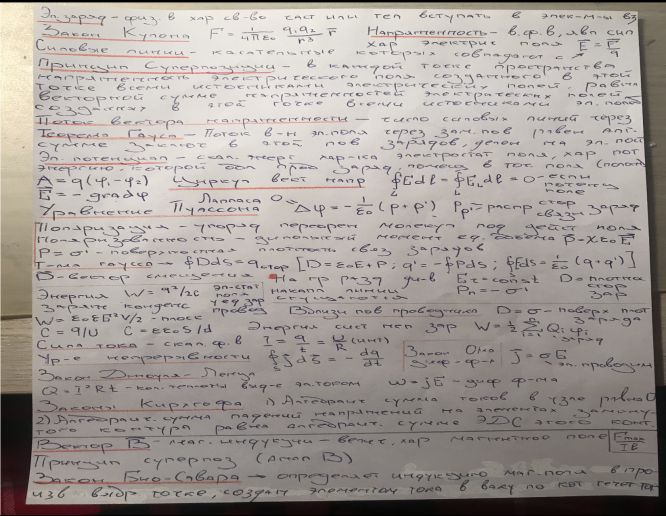 Эл. заряд - физ. в хар св-во част или тел вступать в элек-м-ы вз
Закон Кулона F = 1/4πε₀ q₁q₂/r³ r̄ Напряженность - в.ф.в, явл сил
Силовые линии - касательные которых совпадают с хар электрич поля E̅ = F̅/q
Принцип Суперпозиции - в каждой точке пространства
напряженность электрического поля созданного в этой
точке всеми источниками электрических полей равна
векторной сумме напряженностей электрических полей
созданных в этой точке всеми источниками эл. поля
Поток вектора напряженности - число силовых линий через
Теорема Гаусп - Поток в-н эл. поля через зам. пов равен алг-
сумме заключ в этой пов зарядов, делен на эл. пост
Эл. потенциал - скал. энерг хар-ка электростат поля, хар пот
энергию, которой обл заряд, помещ в тот поля
A = q(φ₁-φ₂) Циркул вект напр ∮Edl = ∮E_L dl = 0 - если
E̅ = -gradφ потенц поле
Уравнение Лапласа 0
Пуассона Δφ = -1/ε₀ (ρ + ρ') стор заряд
связн
Поляризация - упоряд переориен молекул под дейст поля
Поляризованность - дипольный момент ед. объема P̅ = χε₀E̅
P = σ' - поверхностная плотность связ зарядов
Т-ма гаусса ∮DdS = q стор [D = ε₀E + P; q' = -∮PdS; ∮EdS = 1/ε₀ (q + q')]
D - вектор смещения На гр разд Eτ = const D = плотность
Энергия W = q²/2C эл-стат поля накапл линии Pn = -σ' стор
зарядж конденс проводн сгущаются зар
W = ε₀εE²V/2 - плоск Вблизи пов проводника D = σ - поверх плот
заряда
C = q/U C = εε₀S/d Энергия сист неп зар W = ½ Σ Qᵢφᵢ
Сила тока - скал. ф. в I = q/t = U/R (инт)
Ур-е непрерывности ∮jdS = -dq/dt Закон Ома диф-ф-а j̅ = σE̅
эл. проводим
Закон Джоуля-Ленца
Q = I²Rt - кол. теплоты выд-е эл. током w = jE̅ - диф ф-ма
Законы Кирхгофа 1) Алгебраич сумма токов в узле равна 0
2) Алгебраич. сумма падений напряжений на элементах замкну-
того контура равна алгебраич. сумме ЭДС этого конт.
Вектор B̅ - маг. индукции - вект, хар магнитное поле Fmax/IB
Принцип суперпоз (дл B)
Закон Био-Савара - определяет индукцию маг. поля в про-
изв выбр точке, создан элементом тока в ваку по кот течет ток